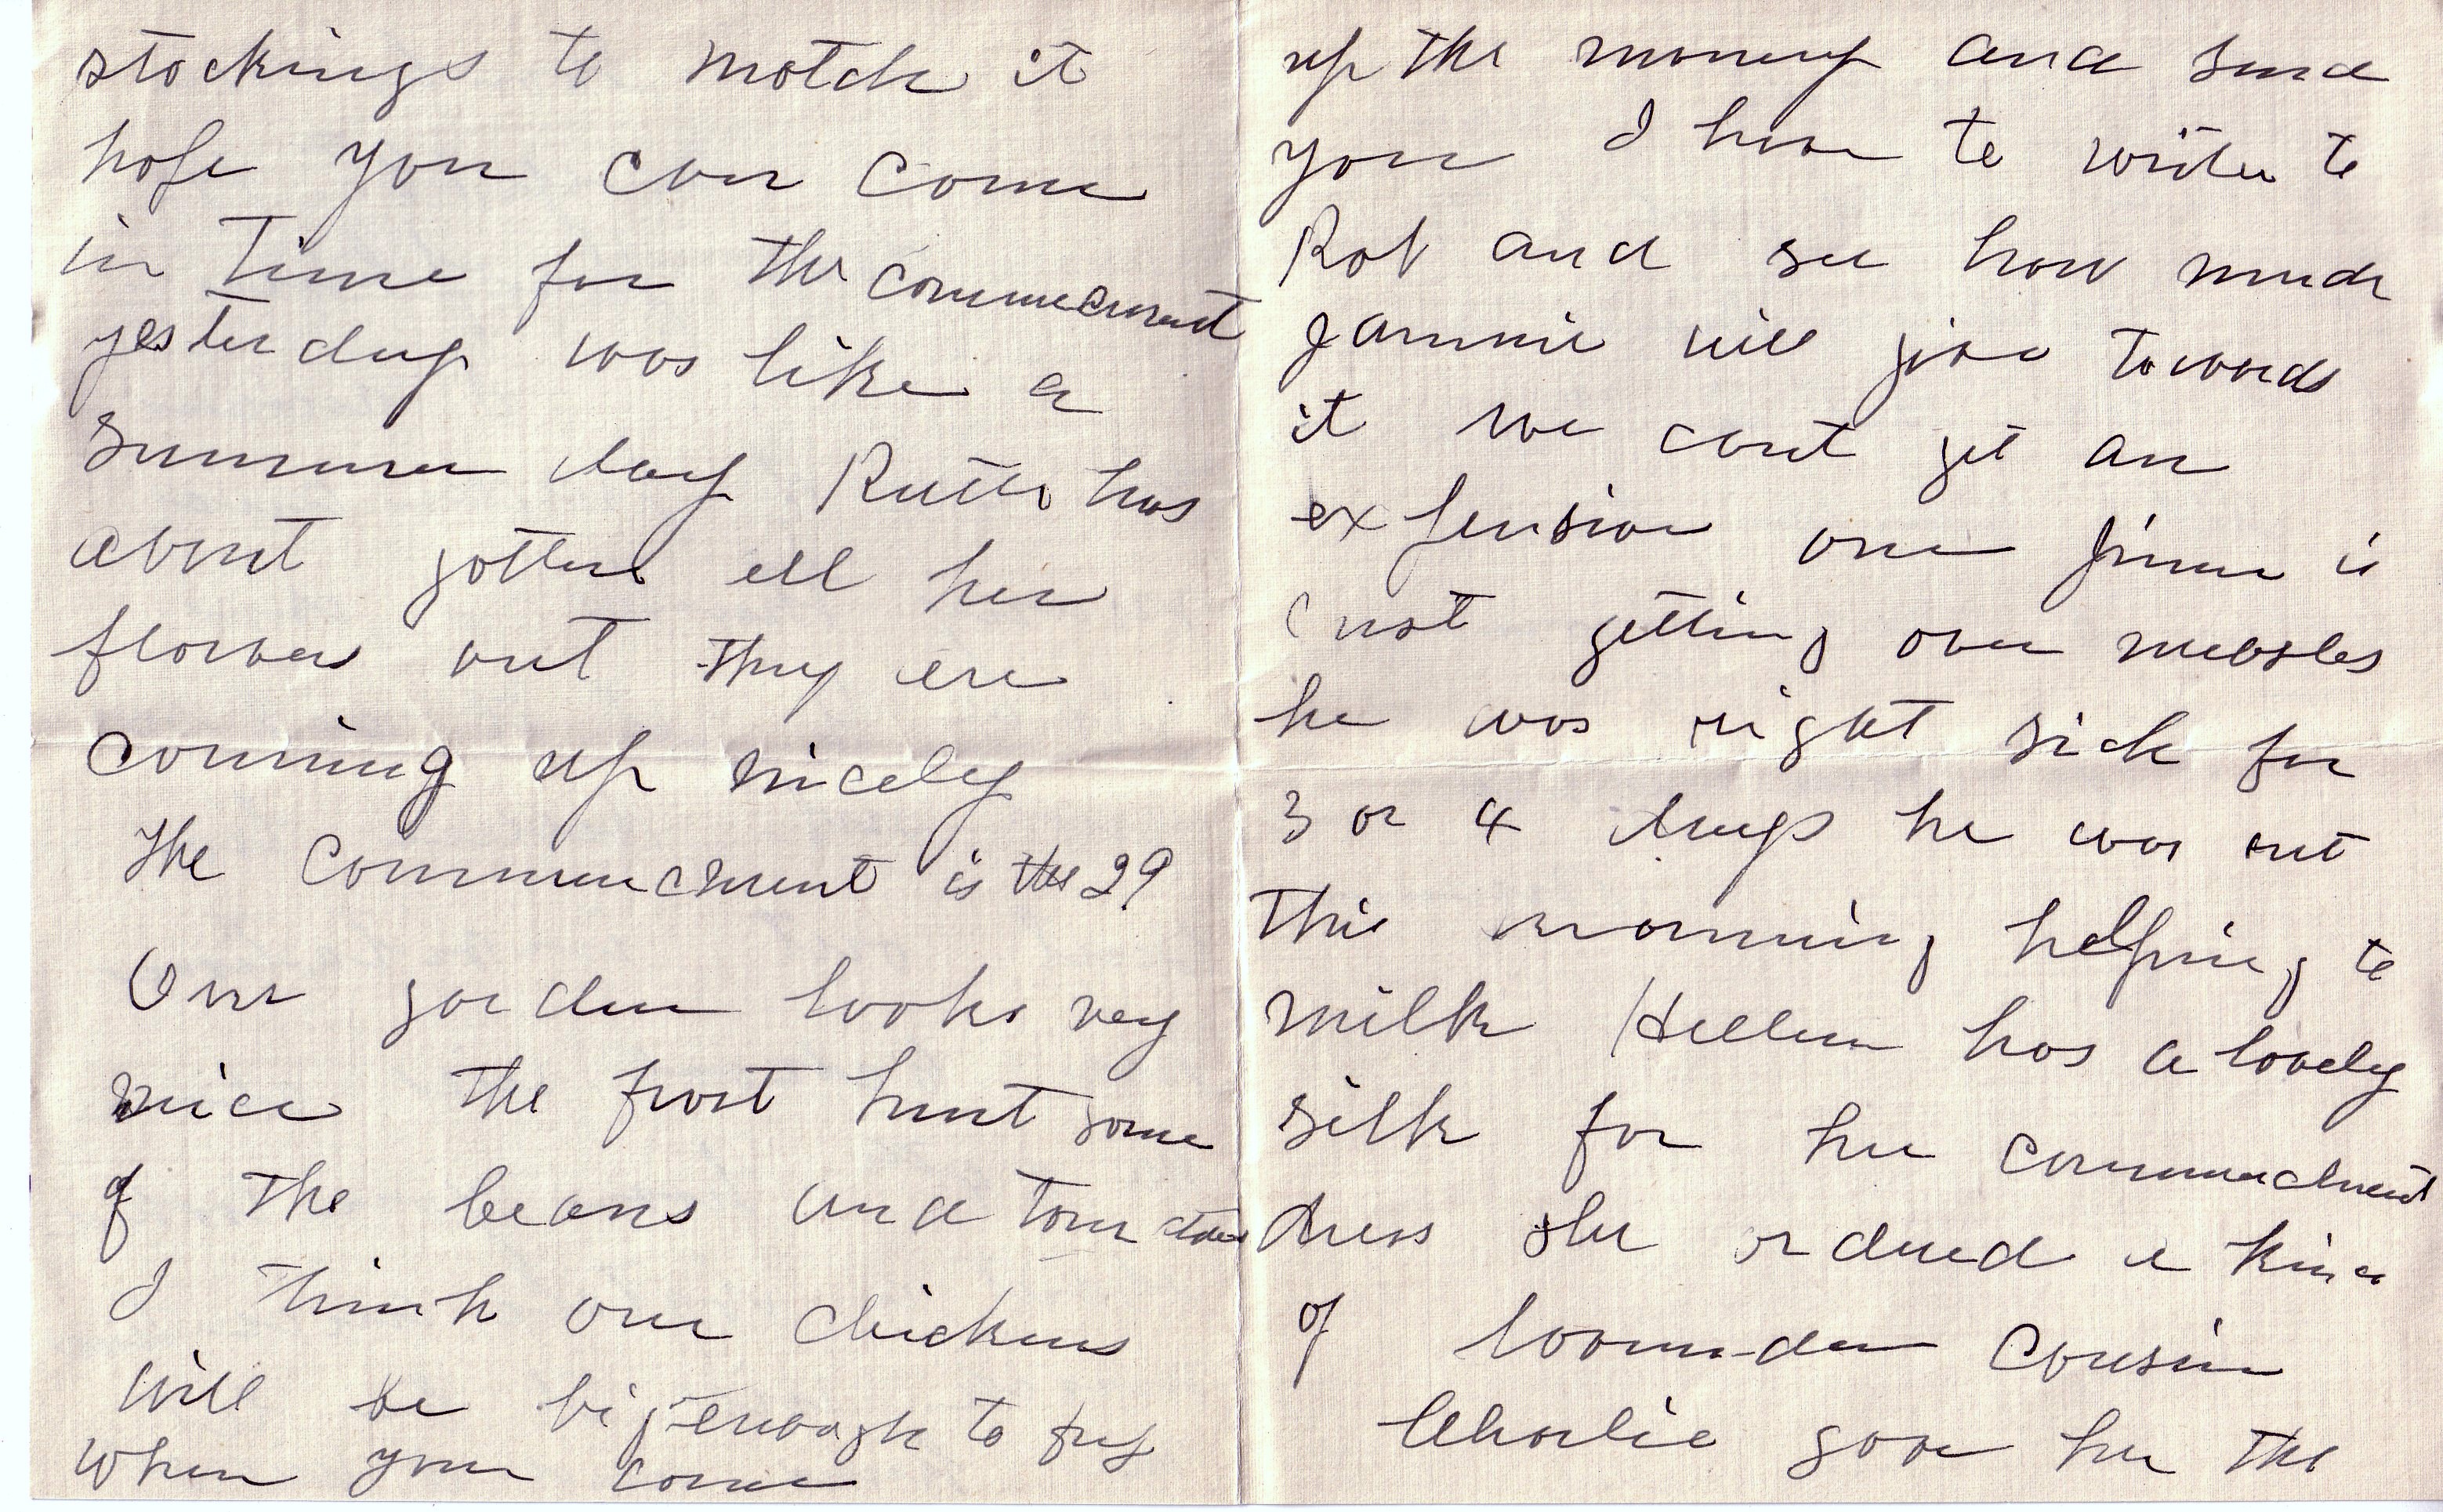 stockings to match it
hope you can come
in time for the commencment
yesterday was like a
summer day Ruth has
about gotten all her
flowers out they are
coming up nicely
The Commencment is the 29
Our garden looks very
nice the frost hurt some
of the beans and tomatoes
I think our chickens
will be big enough to fry
when you come
up the money and send
you I have to write to
Rob and see how much
Jammie will give towards
it we cant get an
expensive one is
Just getting over measles
he was right sick for
3 or 4 days he was out
this morning helping to
milk Hellen has a lovely
silk for her commencment
dress she ordered a kind
of Cousin
Charlie gave her the